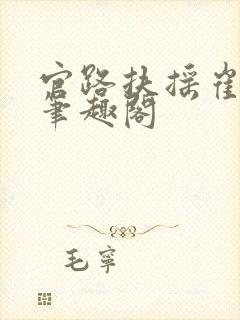 官路扶摇崔
笔趣阁
毛宁